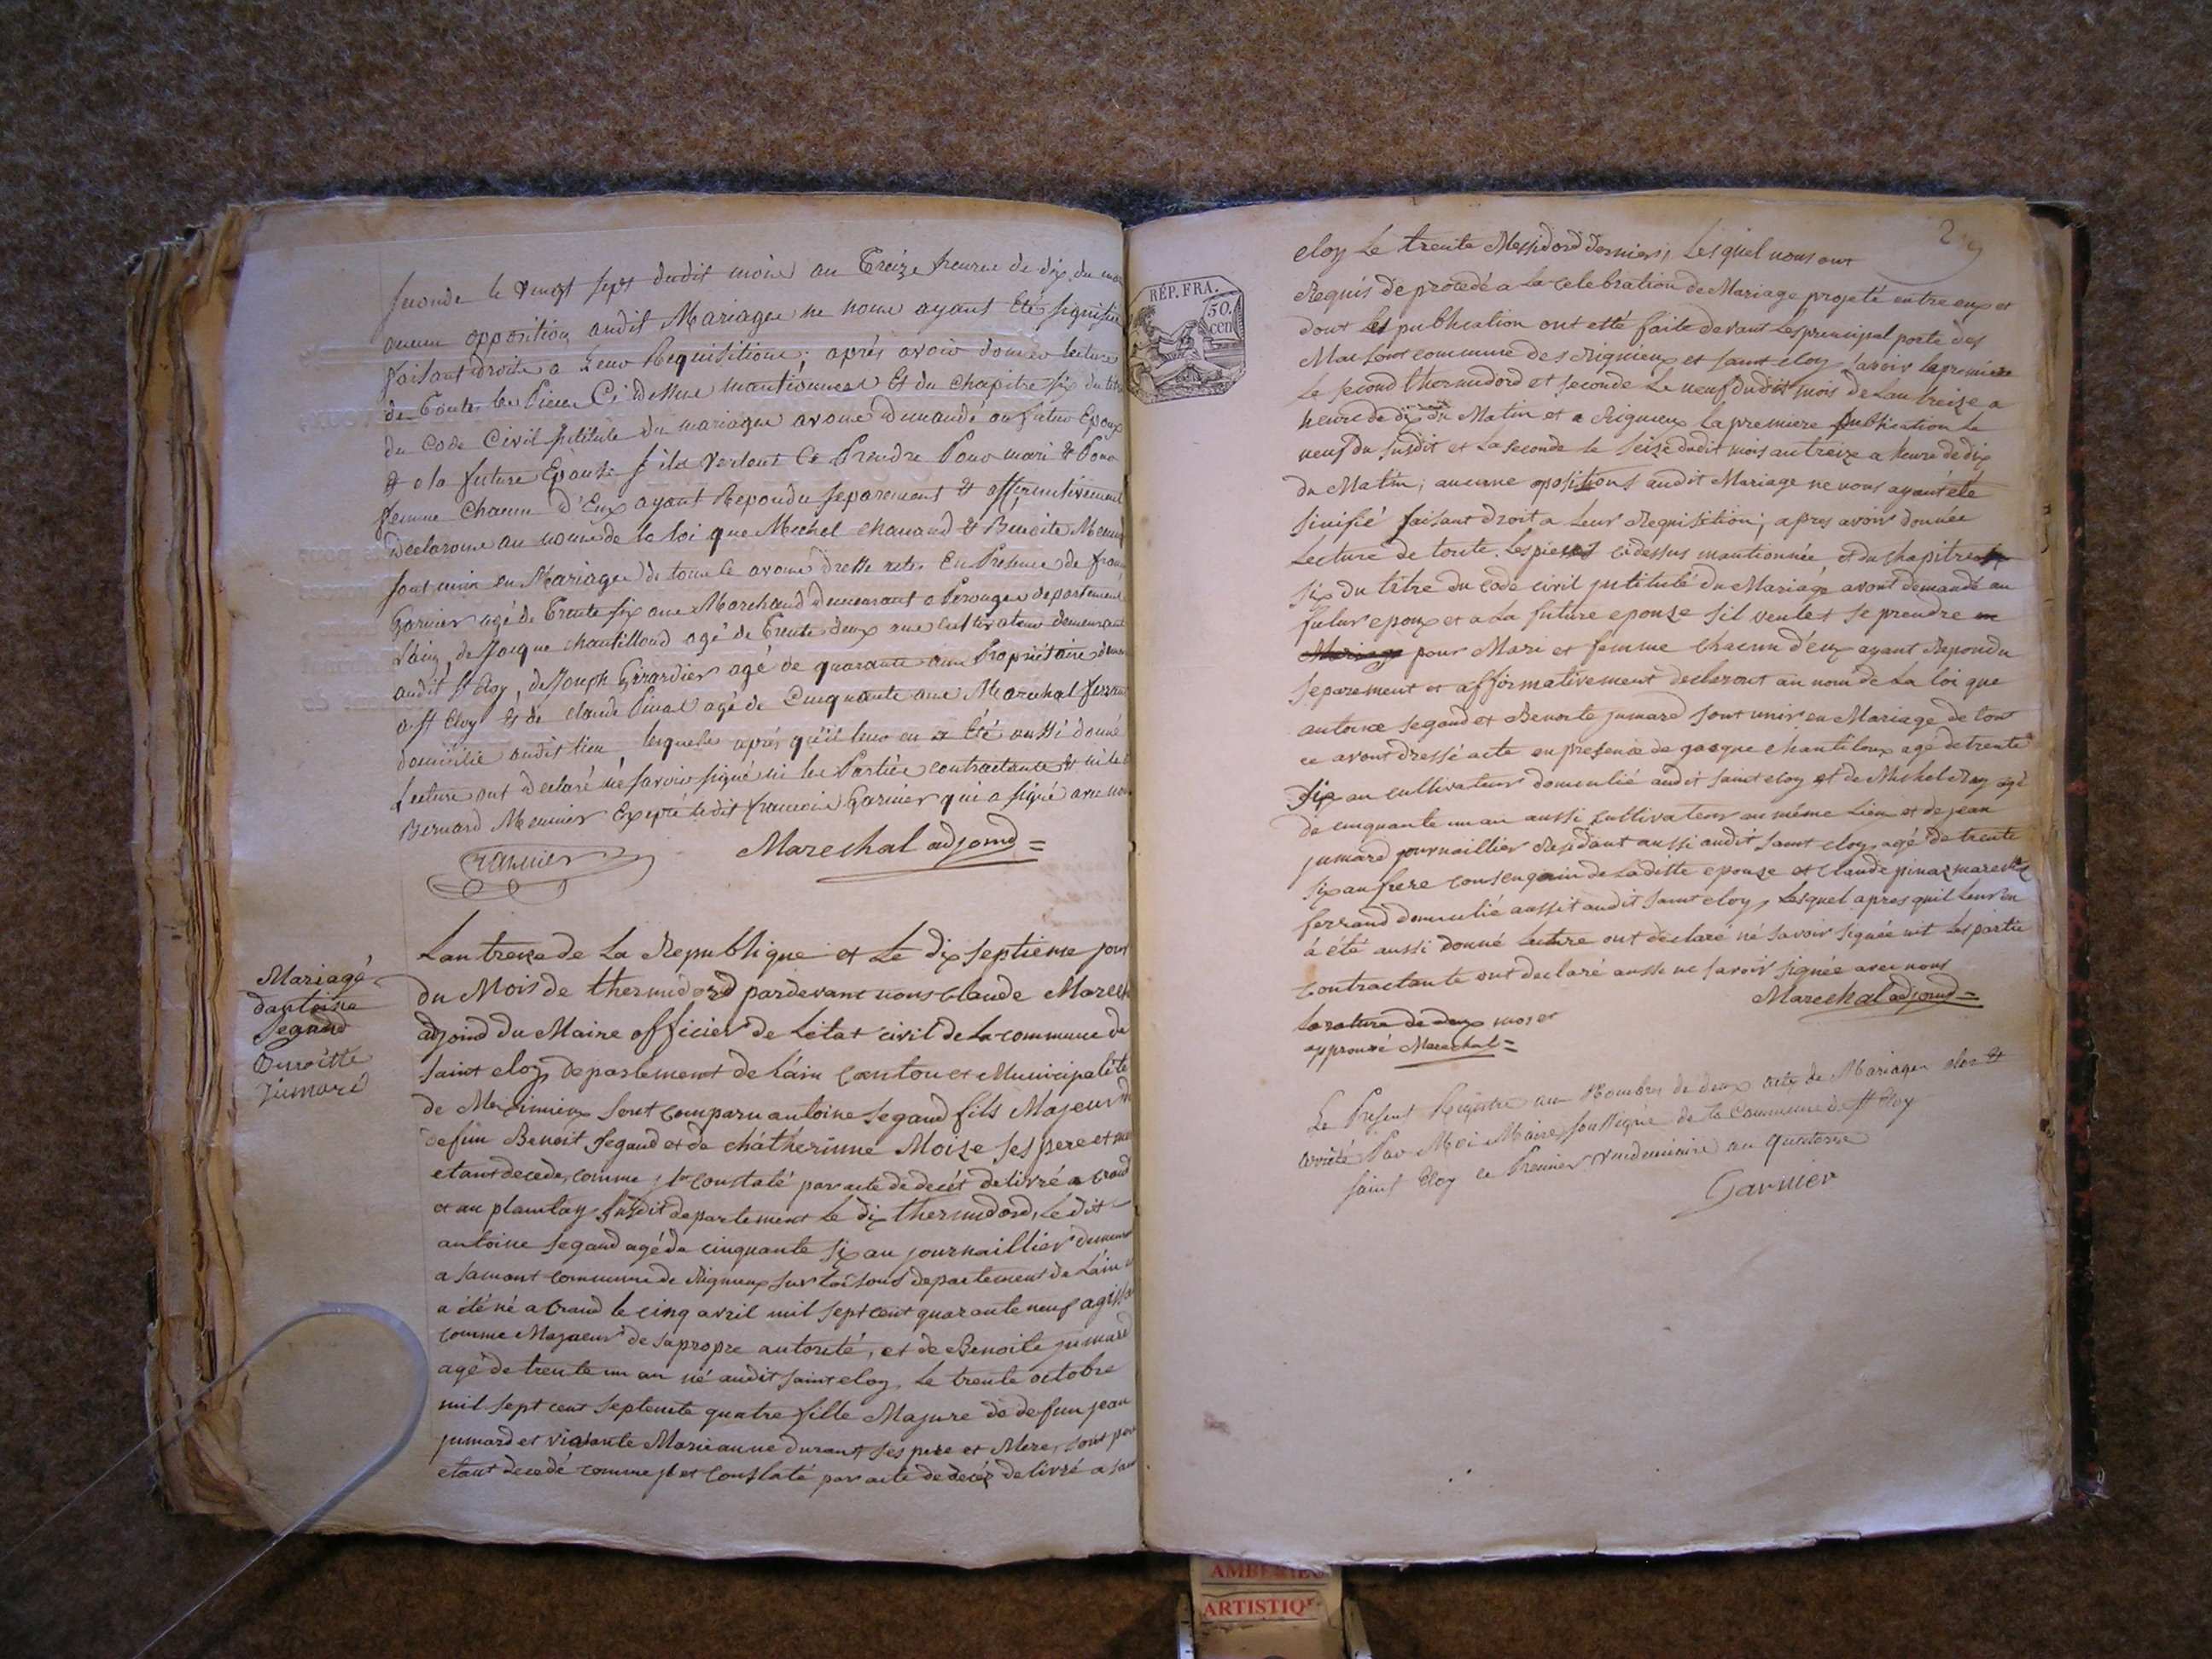 seconde le vingt sept dudit mois an Treize heures de dix du
aucun opposition audit Mariage ne nous ayant été signifiée
faisant droite a Leur Requisitione ; après avoir donner lecture
de Toutes les Pieces Ci dessus mantionnees Et du Chapitre six du titre
du Code Civil Intitule du mariage avons demandé au futur Epoux
& a la future Epouse s'ils veulent Ce Prendre Pour mari & Pour
femme Chacun d'Eux ayant Repondu separement & affirmativement
declarons au nom de la loi que Michel chanard & Benoite
sont unis en Mariage de tous ce avons dresse acte En Presence de
Garnier agé de Trente six ans Marchand demeurant a Perouges departement
Lain, de Jacque chantilloud agé de Trente deux ans cultivateur demeurant
audit St Eloy, de Joseph Girardier agé de quarante ans Propriétaire
a St Eloy & de claude Pinat agé de Cinquante ans Marechal
domicilié audit lieu lesquels après qu'il leur en a Eté aussi donné
Lecture ont declaré ne savoir signé ni les Parties contractante &
Bernard Meunier Excepté ledit francois Garnier qui a signé avec
Garnier Marechal adjoind =
Mariagé
dantoine
Segaud
Benoitte
Jumard
Lan treize de La Republique et Le dix septieme jour
du Mois de thermidord pardevant nous Claude
adjoind du Maire officier de Létat civil de la commune de
Saint eloy departement de Lain canton et Municipalité
de Meximieux sont comparu antoine Segaud fils Majeur
defun Benoit Segaud et de cháthérinne Moize ses pere et
etant decede, comme constaté par acte de decés delivré a
et au plantay susdit departement Le dix thermidord, Le dit
antoine Segaud agé de cinquante six an journaillier
a Samans commune de Rignieux departement de Lain
a été né a Crand le cinq avril mil sept cent quarante neuf
comme Majaeur de sa propre autorité, et de Benoite jumard
agé de trente un an né audit saint eloy Le trente octobre
mil sept cent septente quatre fille Majure de defun jean
jumard et vivante Marieanne Durant ses pere et Mere,
etant decedé comme constaté par acte de decés delivré a
RÉP. FRA.
50.
cen
eloy Le trente Messidord derniers, Lesquel nous ont
Requis de procedé a La celebration de Mariage projeté entre eux et
dont les publication ont etté faite devant Les principal porte des
Maisons commune des Rignieux et saint eloy savoir la premiere
Le second thermidord et seconde Le neuf dudit mois de Lan treize a
heure de dix du Matin et a Rignieux La premiere publication Le
neuf du susdit et La seconde le seize dudit mois an treize a heure de dix
du Matin ; aucune opositions audit Mariage ne nous ayant été
sinifié faisant droit a Leur Requisition ; apres avoir donnée
Lecture de toute Les pieces cidessus mantionnée et du chapitre
six du titre du code civil intitulé du Mariage avont demandé au
futur epoux et a La future epouze sil veulet se prendre
pour Mari et femme chacun d'eux ayant Repondu
separement et affirmativement declaront au nom de La loi que
antoine segaud et Benoite jumard sont unis en Mariage de tout
ce avont dressé acte en presence de gasque chantiloux agé de trente
six an cultivateur domicilié audit saint eloy et de Michel Ray agé
de cinquante un an aussi cultivateur au même Lieu et de jean
jumard journaillier Residant aussi audit saint eloy agé de trente
six an frere consenguin de Laditte epouze et Claude pinaz marechal
ferrand domicilié aussit audit saint eloy, Lesquel apres quil Leur en
à été aussi donné Lecture ont déclaré né savoir signée nit Les partie
contractante ont declaré ausse ne savoir signée avec nous
Marechal adjoind =
La rature de deux mos et
approuvé Marechal =
Le Present Registre au Nombre de deux acte de Mariages clos &
arrété Par Moi Maire soussigné de la Commune de St Eloy
saint Eloy ce Premier vendemiaire an quatorse
Garnier